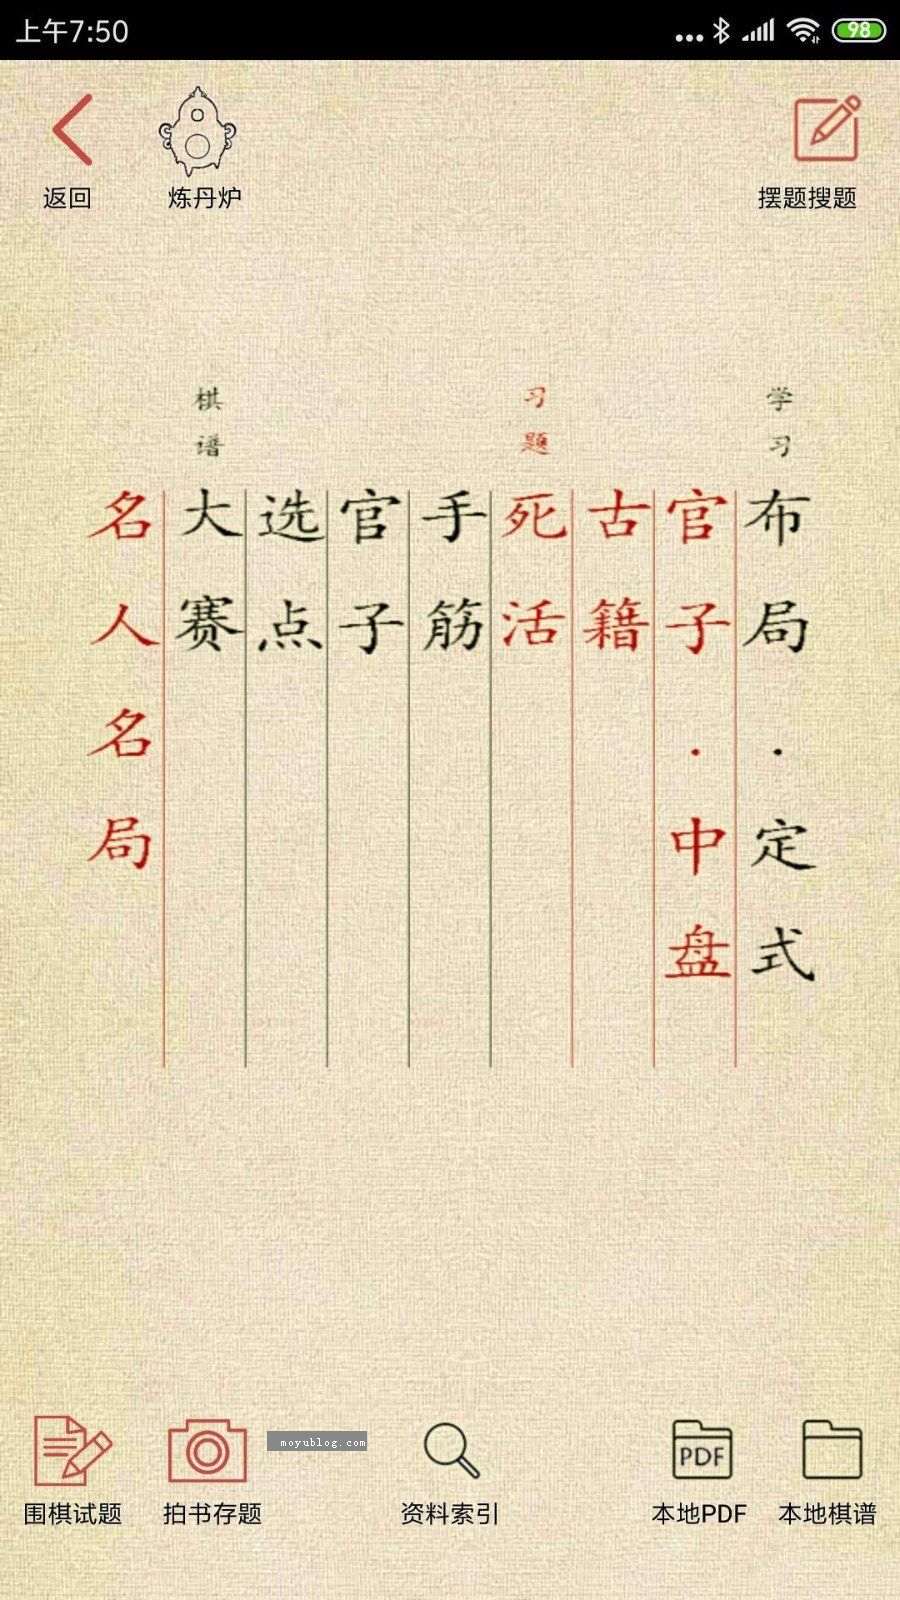 上午7:50
98
返回
炼丹炉
摆题搜题
学习
习题
棋谱
布局·定式
官子·中盘
古籍
死活
手筋
官子
选点
大赛
名人名局
moyublog.com
PDF
围棋试题
拍书存题
资料索引
本地PDF
本地棋谱